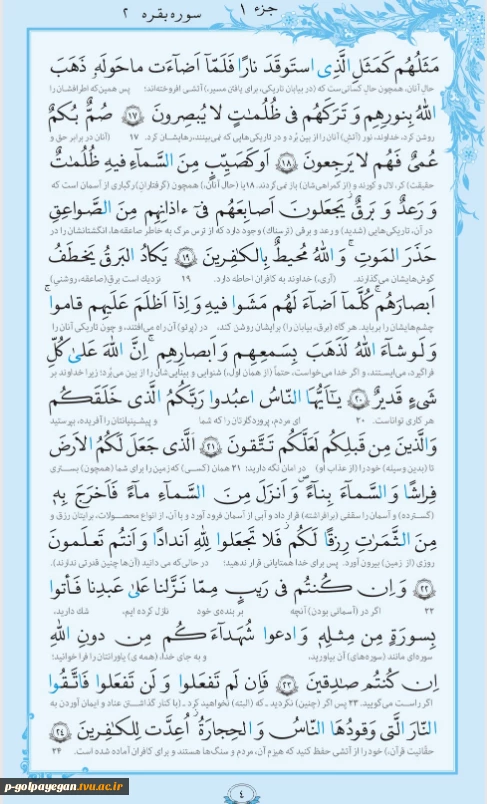 جزء ۱
سوره بقره ۲
مَثَلُهُم كَمَثَلِ الَّذِی استَوقَدَ نارًا فَلَمّآ اَضآءَت ماحَولَهُۥ ذَهَبَ
حال آنان، همچون حال کسانی‌ست که (در بیابان تاریکی، برای یافتن مسیر،) آتشی افروخته‌اند؛ پس همین‌که اطرافشان را
اللهُ بِنورِهِم وَ تَرَكَهُم فی ظُلُمٰتٍ لا یُبصِرونَ ﴿۱۷﴾ صُمٌّ بُكمٌ
روشن کرد، خداوند، نور (آتش) آنان را از بین بُرد و در تاریکی‌هایی که نمی‌بینند، رهایشان کرد. ۱۷ (آنان در برابر حق و
عُمیٌ فَهُم لا یَرجِعونَ ﴿۱۸﴾ اَو كَصَیِّبٍ مِنَ السَّمآءِ فیهِ ظُلُمٰتٌ
حقیقت) کر، لال و کورند و (از گمراهی‌شان) باز نمی‌گردند. ۱۸ یا (حال آنان،) همچون (گرفتارانِ) رگباری از آسمان است که
وَ رَعدٌ وَ بَرقٌ یَجعَلونَ اَصابِعَهُم فی ءاذانِهِم مِنَ الصَّواعِقِ
در آن، تاریکی‌هایی (شدید) و رعد و برقی (ترسناک) وجود دارد که از ترس مرگ به خاطر صاعقه‌ها، انگشتانشان را در
حَذَرَ المَوتِ ۚ وَ اللهُ مُحیطٌ بِالكٰفِرینَ ﴿۱۹﴾ یَكادُ البَرقُ یَخطَفُ
گوش‌هایشان می‌گذارند. (آری،) خداوند به کافران احاطه دارد. ۱۹ نزدیک است برق (صاعقه، روشنیِ)
اَبصارَهُم ۖ كُلَّمآ اَضآءَ لَهُم مَشَوا فیهِ وَ اِذآ اَظلَمَ عَلَیهِم قاموا ۚ
چشم‌هایشان را برباید. هر گاه (برق، بیابان را) برایشان روشن کند، در (پرتو) آن راه می‌افتند، و چون تاریکی آنان را
وَ لَو شآءَ اللهُ لَذَهَبَ بِسَمعِهِم وَ اَبصارِهِم ۚ اِنَّ اللهَ عَلیٰ كُلِّ
فراگیرد، می‌ایستند، و اگر خدا می‌خواست، حتماً (از همان اول،) شنوایی و بینایی‌شان را از بین می‌بُرد؛ زیرا خداوند بر
شَیءٍ قَدیرٌ ﴿۲۰﴾ یٰٓاَیُّهَا النّاسُ اعبُدوا رَبَّكُمُ الَّذی خَلَقَكُم
هر کاری تواناست. ۲۰ ای مردم، پروردگارتان را که شما و پیشینیانتان را آفریده، بپرستید
وَ الَّذینَ مِن قَبلِكُم لَعَلَّكُم تَتَّقونَ ﴿۲۱﴾ اَلَّذی جَعَلَ لَكُمُ الاَرضَ
تا (بدین وسیله) خود را (از عذاب او) در امان نگه دارید؛ ۲۱ همان (کسی) که زمین را برای شما (همچون) بستری
فِراشًا وَ السَّمآءَ بِنآءً وَ اَنزَلَ مِنَ السَّمآءِ مآءً فَاَخرَجَ بِهٖ
(گسترده) و آسمان را سقفی (برافراشته) قرار داد و آبی از آسمان فرود آورد و با آن، از انواع محصولات، برایتان رزق و
مِنَ الثَّمَرٰتِ رِزقًا لَكُم ۖ فَلا تَجعَلوا لِلّٰهِ اَندادًا وَ اَنتُم تَعلَمونَ
روزی (از زمین) بیرون آورد. پس برای خدا همتایانی قرار ندهید؛ در حالی‌که می‌دانید (آن‌ها چنین قدرتی ندارند).
﴿۲۲﴾ وَ اِن كُنتُم فی رَیبٍ مِمّا نَزَّلنا عَلیٰ عَبدِنا فَأتوا
۲۲ اگر در (آسمانی بودن) آنچه بر بنده‌ی خود نازل کرده ایم، شک دارید،
بِسورَةٍ مِن مِثلِهٖ وَ ادعوا شُهَدآءَكُم مِن دونِ اللهِ
سوره‌ای مانند (سوره‌های) آن بیاورید، و به جای خدا، (همه ی) یاورانتان را فرا خوانید؛
اِن كُنتُم صٰدِقینَ ﴿۲۳﴾ فَاِن لَم تَفعَلوا وَ لَن تَفعَلوا فَاتَّقُوا
اگر راست می‌گویید. ۲۳ پس اگر (چنین) نکردید ـ که (البته) نخواهید کرد ـ (با کنار گذاشتن عناد و ایمان آوردن به
النّارَ الَّتی وَقودُهَا النّاسُ وَ الحِجارَةُ ۖ اُعِدَّت لِلكٰفِرینَ ﴿۲۴﴾
حقّانیت قرآن،) خود را از آتشی حفظ کنید که هیزم آن، مردم و سنگ‌ها هستند و برای کافران آماده شده است. ۲۴
٤
p-golpayegan.tvu.ac.ir